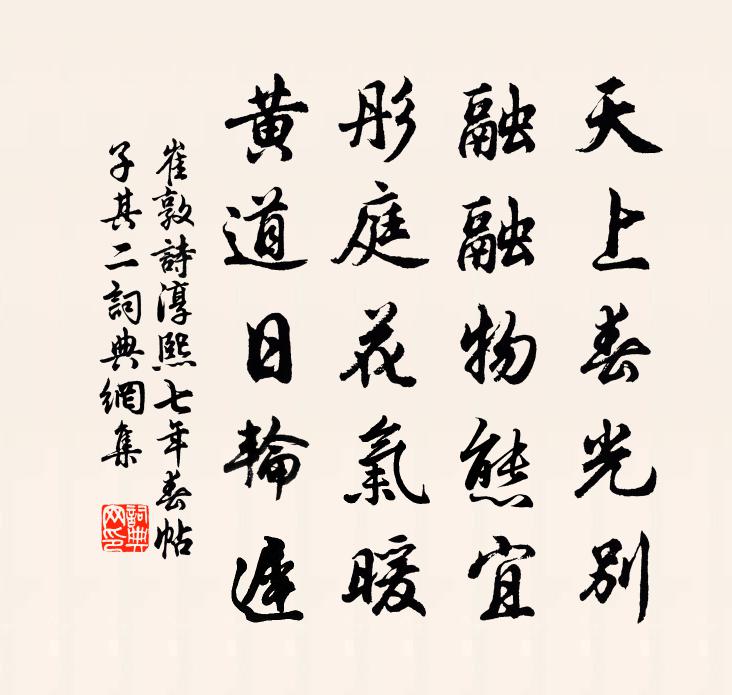 天上春光別
融融物態宜
彤庭花氣暖
黃道日輪遲
崔敦詩淳熙七年春帖
子其二詞典網集
詞典
网印